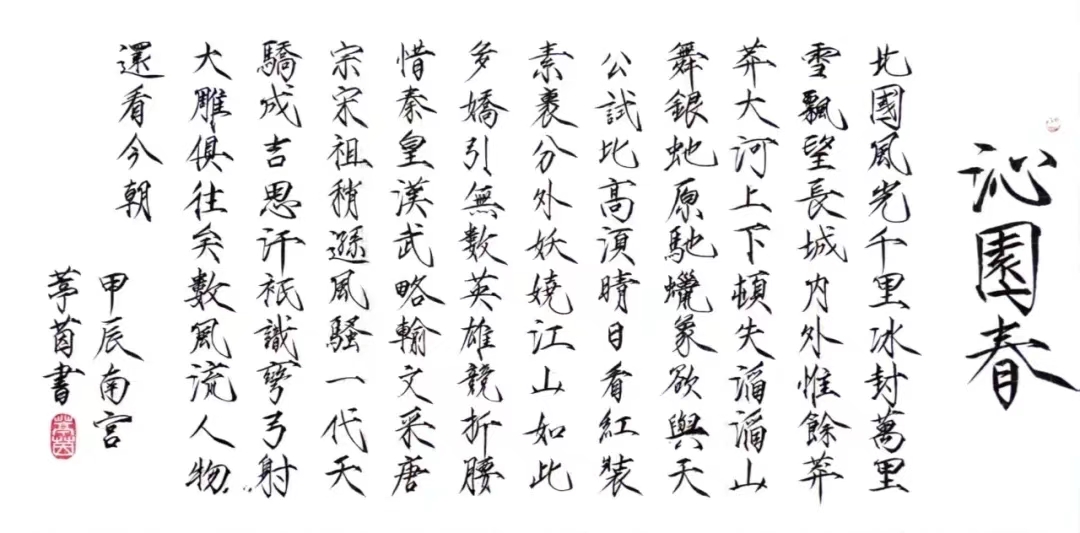 沁園春
北國風光千里冰封萬里
雪飄望長城內外惟餘莽
莽大河上下頓失滔滔山
舞銀虵原馳蠟象欲與天
公試比高須晴日看紅裝
素裹分外妖嬈江山如此
多嬌引無數英雄競折腰
惜秦皇漢武略輸文采唐
宗宋祖稍遜風騷一代天
驕成吉思汗祇識彎弓射
大雕俱往矣數風流人物
還看今朝
甲辰南宮
葶茵書
葶茵